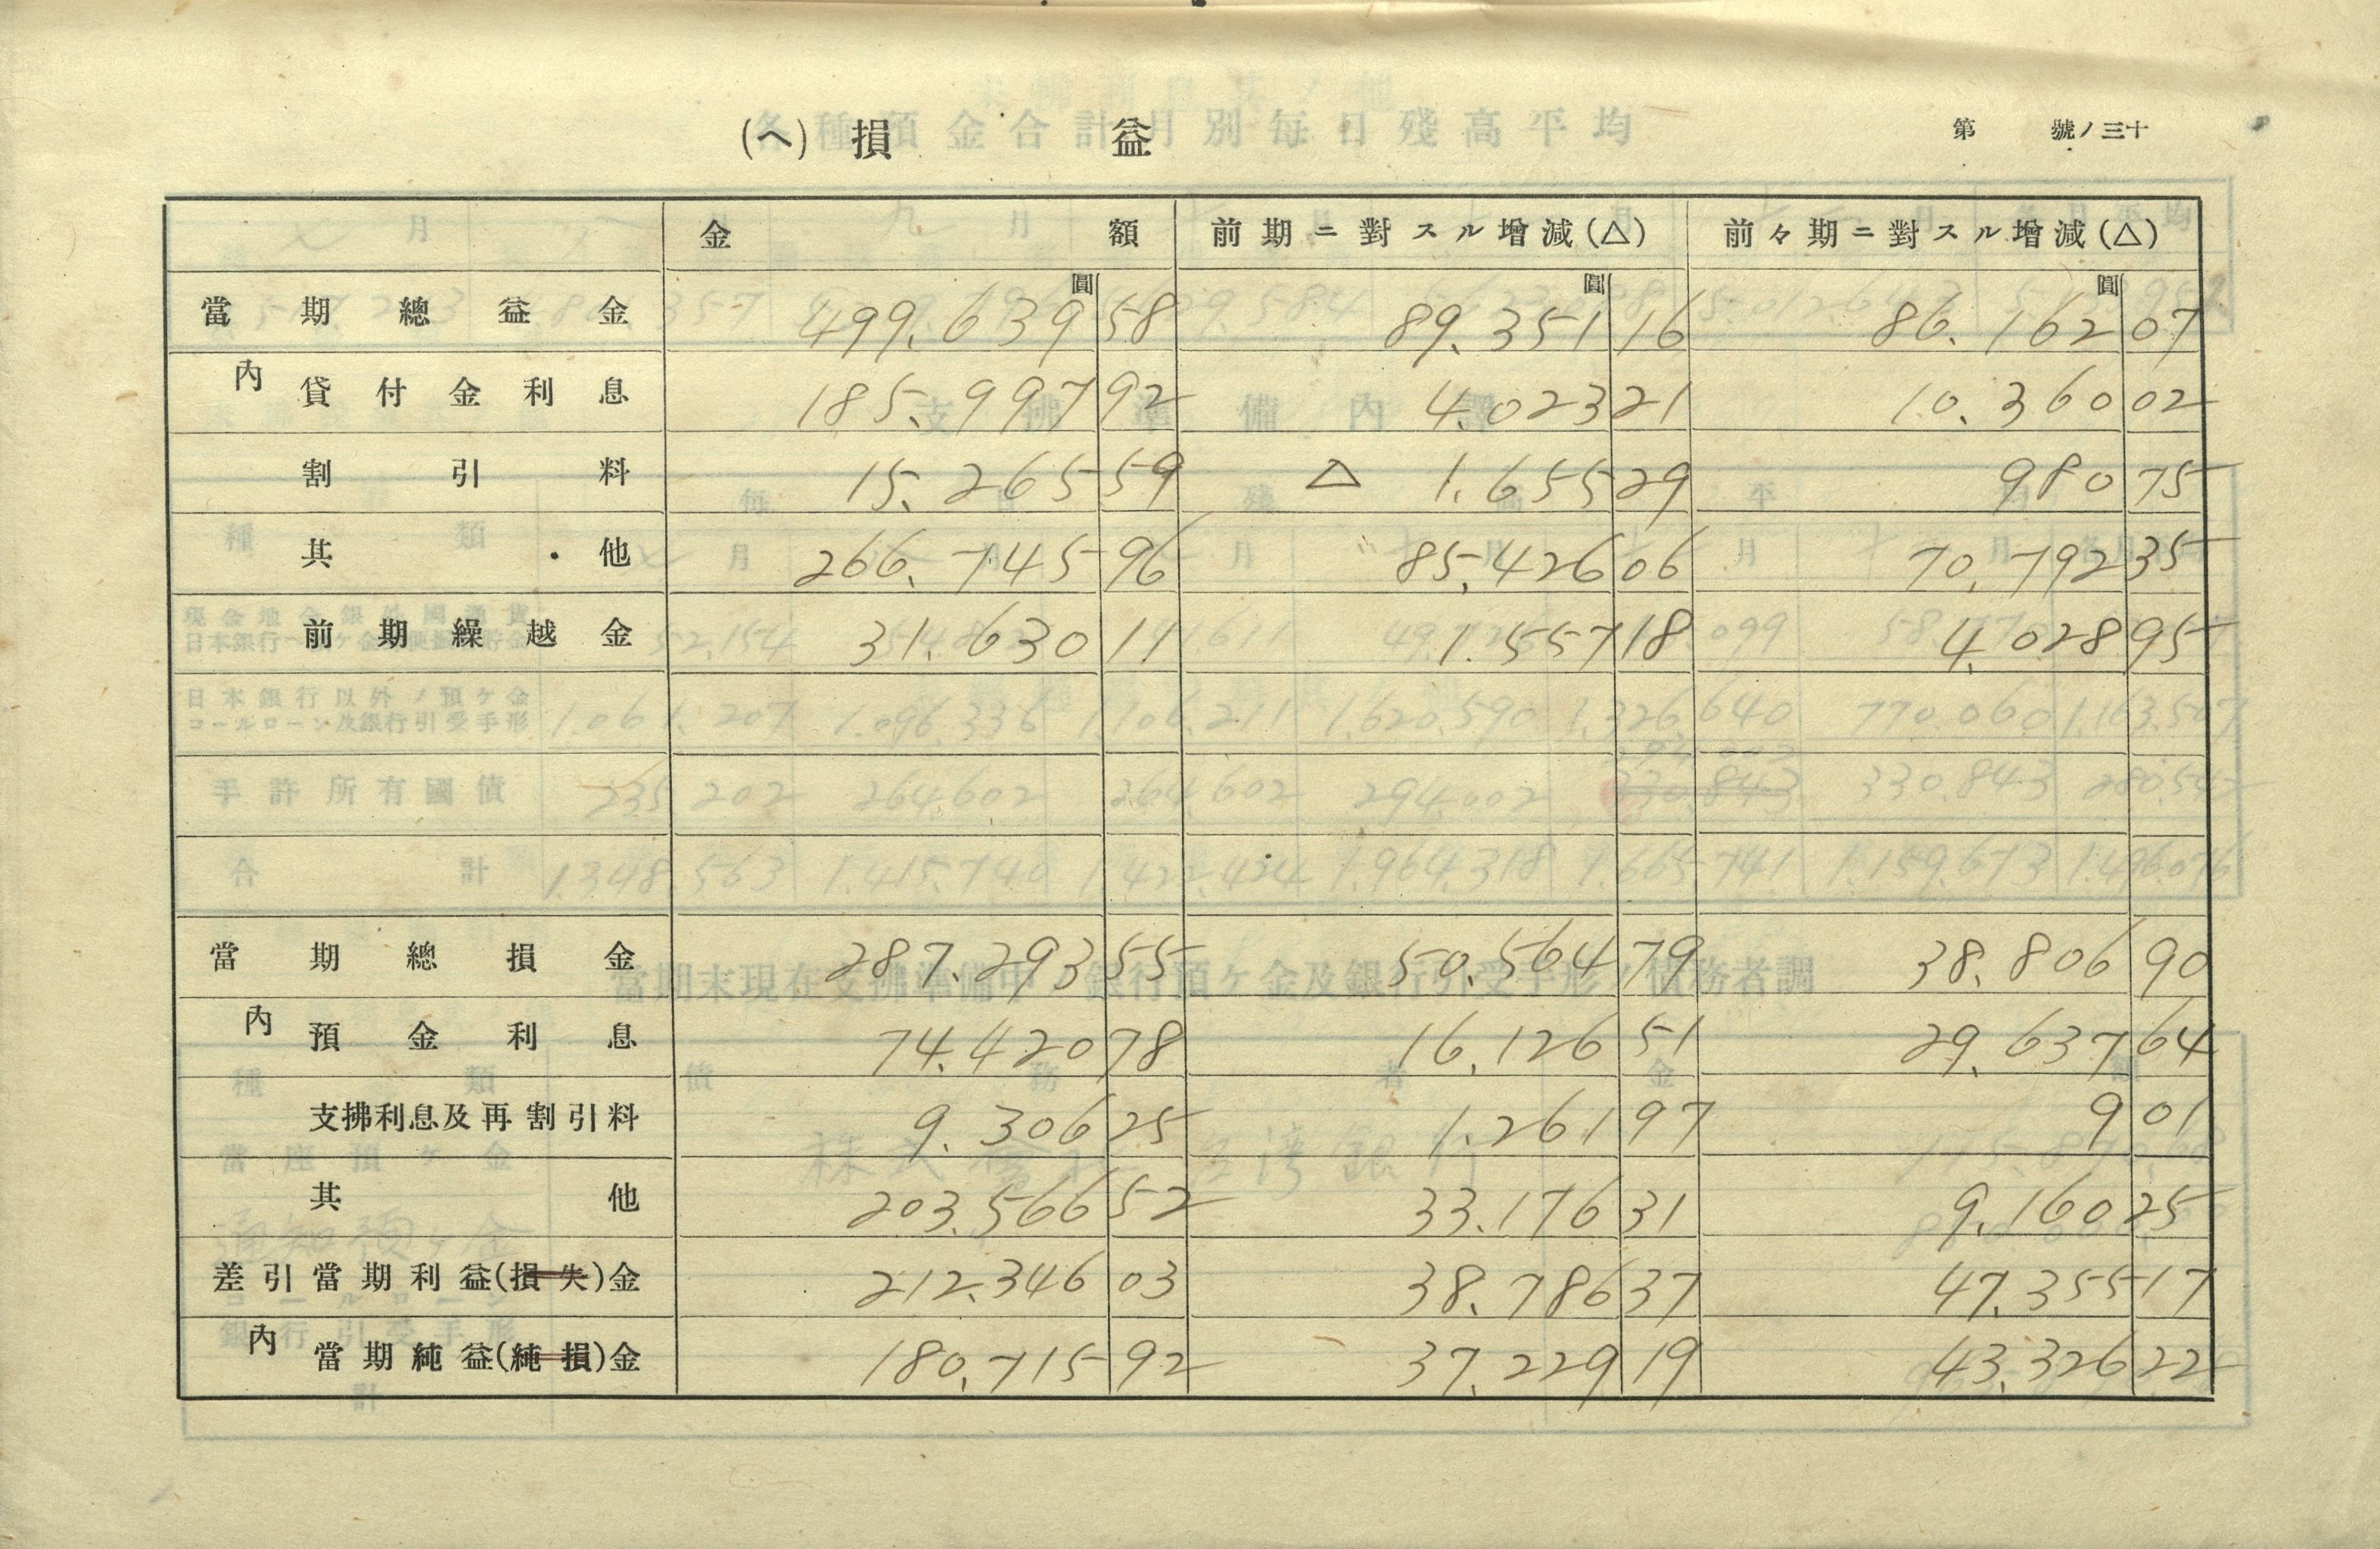 (ヘ) 損 益
第 號ノ三十
金 額 前期ニ對スル增減(△) 前々期ニ對スル增減(△)
圓 圓 圓
當期總益金 499.639 58 89.351 16 86.162 07
內 貸付金利息 185.997 92 4.023 21 10.360 02
割引料 15.265 59 △ 1.655 29 980 75
其他 266.745 96 85.426 06 70.792 35
前期繰越金 31.630 11 1.557 18 4.028 95
當期總損金 287.293 55 50.564 79 38.806 90
內 預金利息 74.420 78 16.126 51 29.637 64
支拂利息及再割引料 9.306 25 1.261 97 9 01
其他 203.566 52 33.176 31 9.160 25
差引當期利益(損失)金 212.346 03 38.786 37 47.355 17
內 當期純益(純損)金 180.715 92 37.229 19 43.326 22